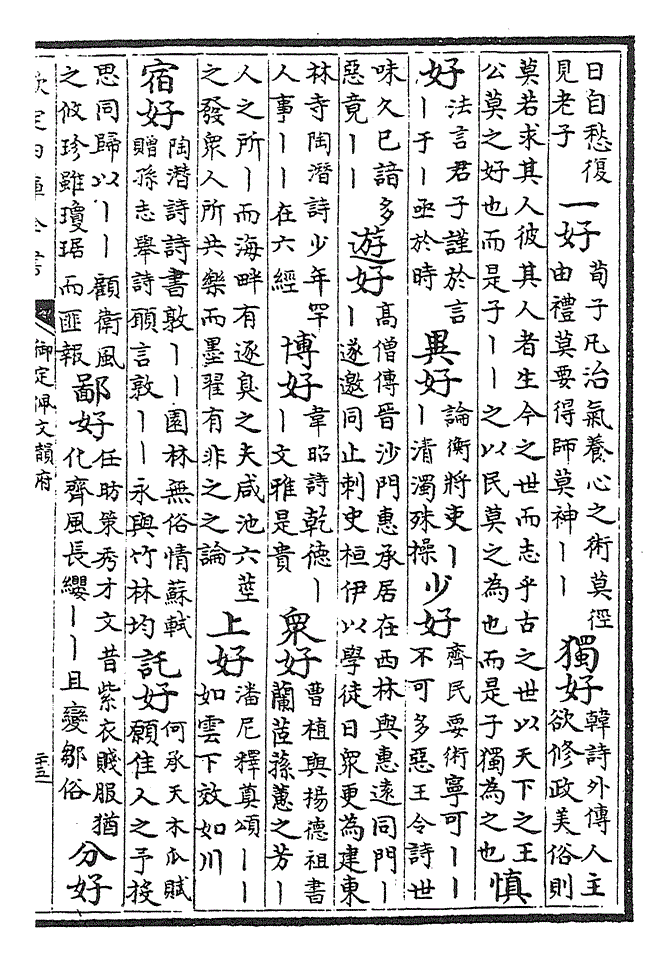 日自愁復
見老子
一好
荀子凡治氣養心之術莫徑
由禮莫要得師莫神丨丨
獨好
韓詩外傳人主
欲修政美俗則
莫若求其人彼其人者生今之世而志乎古之世以天下之王
公莫之好也而是子丨丨之以民莫之為也而是子獨為之也
慎
好
法言君子謹於言
丨于丨亟於時
異好
論衡將吏丨
丨清濁殊操
少好
齊民要術寧可丨丨
不可多惡王令詩世
味久已諳多
惡竟丨丨
遊好
高僧傳晉沙門惠承居在西林與惠遠同門丨
丨遂邀同止刺史桓伊以學徒日衆更為建東
林寺陶潛詩少年罕
人事丨丨在六經
博好
韋昭詩乾德丨
丨文雅是貴
衆好
曹植與楊德祖書
蘭茝蓀蕙之芳丨
人之所丨而海畔有逐臭之夫咸池六莖
之發衆人所共樂而墨翟有非之之論
上好
潘尼釋奠頌丨丨
如雲下效如川
宿好
陶潛詩詩書敦丨丨園林無俗情蘇軾
贈孫志舉詩願言敦丨丨永與竹林均
託好
何承天木瓜賦
願佳人之予投
思同歸以丨丨顧衛風
之攸珍雖瓊琚而匪報
鄙好
任昉策秀才文昔紫衣賤服猶
化齊風長纓丨丨且變鄒俗
分好
欽定四庫全書
御定佩文韻府